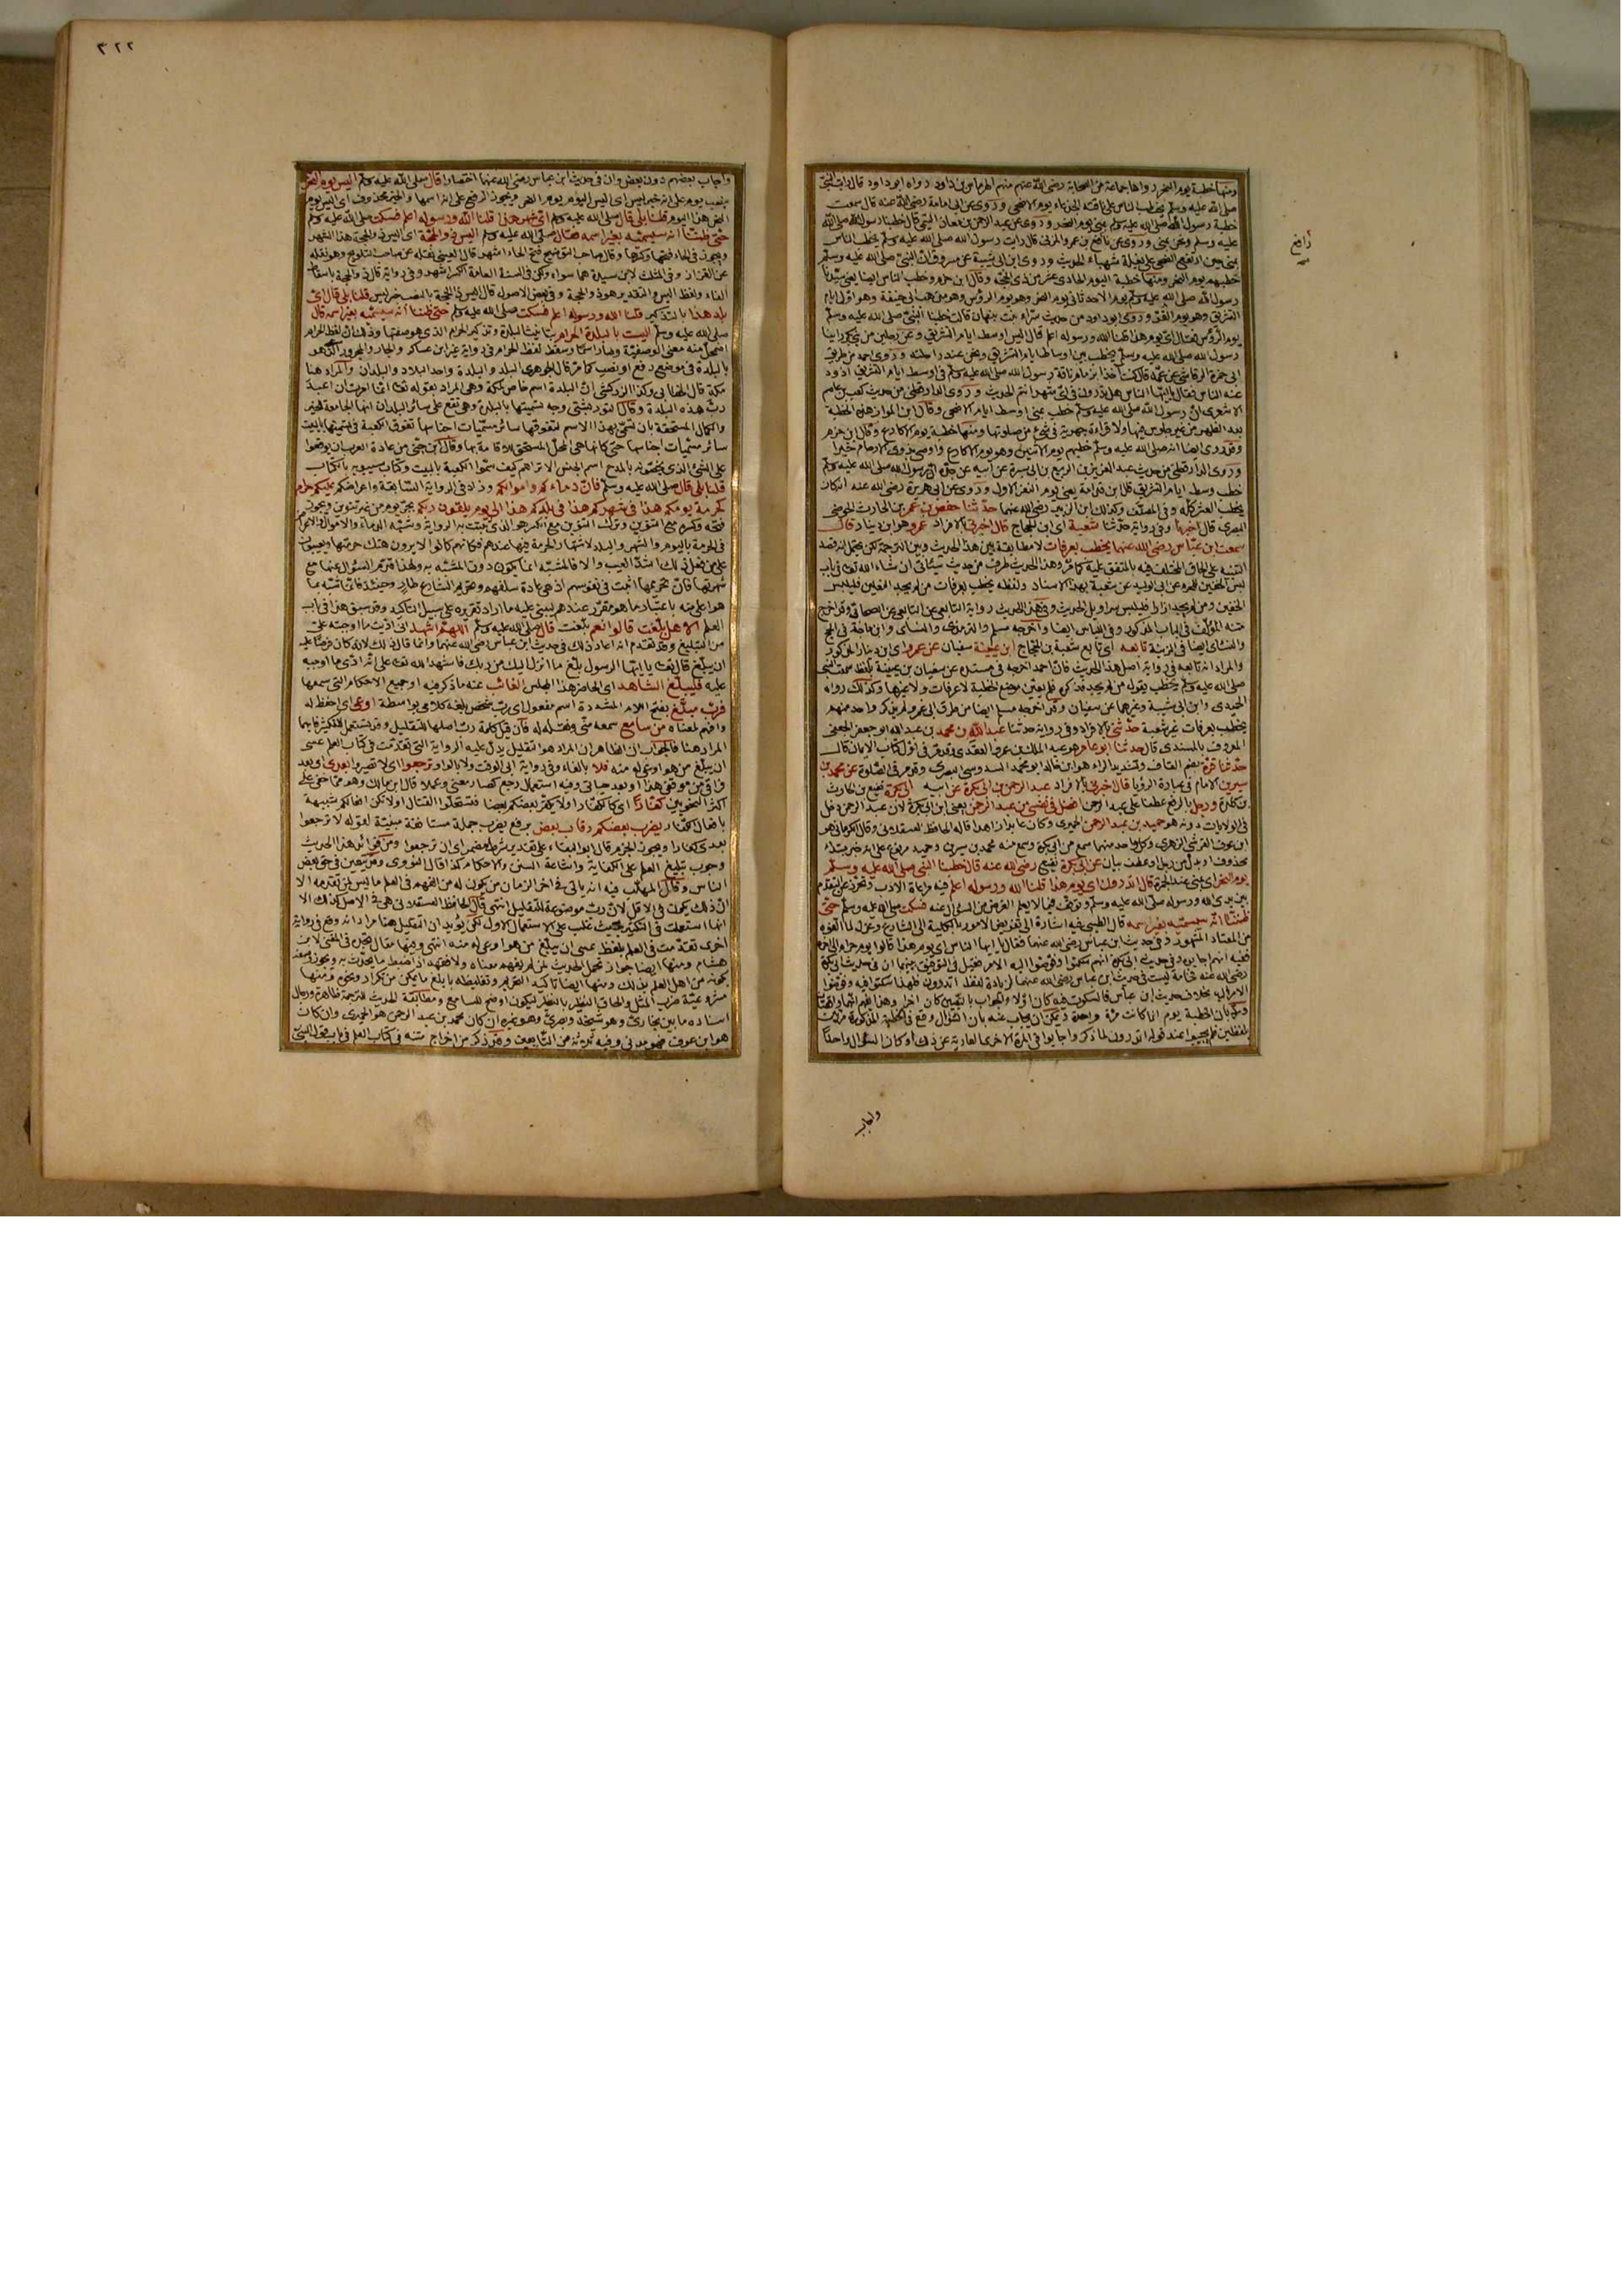 ومنها خطبة يوم النحر رواها جماعة من الصحابة رضي الله عنهم منهم الهرماس بن زياد رواه ابو داود قال رايت النبي
صلى الله عليه وسلم يخطب الناس على ناقته العضباء يوم الاضحى وروى عن ابى امامة رضي الله عنه قال سمعت
خطبة رسول الله صلى الله عليه وسلم بمنى يوم النحر وروى عن عبد الرحمن بن معاذ التيمى قال خطبنا رسول الله صلى الله
عليه وسلم ونحن بمنى وروى عن رافع بن عمرو المزنى قال رايت رسول الله صلى الله عليه وسلم يخطب الناس
بمنى حين ارتفع الضحى على بغلة شهباء الحديث وروى ابن ابى شيبة عن مسروق ان النبى صلى الله عليه وسلم
خطبهم يوم النحر ومنها خطبة اليوم الحادى عشر من ذى الحجة وقال ابن حزم وخطب الناس ايضا يعنى سيدنا
رسول الله صلى الله عليه وسلم يوم الاحد ثانى يوم النحر وهو يوم الرؤس وهو مذهب ابى حنيفة وهو اول ايام
التشريق وهو يوم القر وروى ابو داود من حديث سراء بنت نبهان قالت خطبنا النبى صلى الله عليه وسلم
يوم الرؤس فقال اى يوم هذا قلنا الله ورسوله اعلم قال اليس اوسط ايام التشريق وعن رجلين من بنى بكر راينا
رسول الله صلى الله عليه وسلم يخطب بين اوساط ايام التشريق ونحن عند راحلته وروى احمد من طريق
ابى حرة الرقاشى عن عمه قال كنت آخذا بزمام ناقة رسول الله صلى الله عليه وسلم فى اوسط ايام التشريق اذود
عنه الناس فقال يا ايها الناس هل تدرون فى اى شهر انتم الحديث وروى الدارقطنى من حديث كعب بن عاصم
الاشعرى ان رسول الله صلى الله عليه وسلم خطب بمنى اوسط ايام الاضحى وقال ابن المواز هذه الخطبة
بعد الظهر من غير جلوس فيها ولا قراءة جهرية فى شىء من صلوتها ومنها خطبة يوم الاكارع وقال ابن حزم
وقد روى ايضا انه صلى الله عليه وسلم خطبهم يوم الاثنين وهو يوم الاكارع واوصى بذوى الارحام خيرا
وروى الدارقطنى من حديث عبد العزيز بن الربيع بن ابى سبرة عن ابيه عن جده ان رسول الله صلى الله عليه وسلم
خطب وسط ايام التشريق قال ابن قدامة يعنى يوم النفر الاول وروى عن ابى هريرة رضي الله عنه انه كان
يخطب العشر كله وفى المصنف وكذلك ابن الزبير رضي الله عنهما حدثنا حفص بن عمر بن الحارث الحوضى
البصرى قال اخبرنا وفى رواية حدثنا شعبة اى ابن الحجاج قال اخبرنى بالافراد عمرو هو ابن دينار قال
سمعت ابن عباس رضي الله عنهما يخطب بعرفات لا مطابقة بين هذا الحديث وبين الترجمة لكن يحتمل انه قصد
التنبيه على الحاق المختلف فيه بالمتفق عليه كما مر وهذا الحديث طرف من حديث سيأتى ان شاء الله تعالى فى باب
لبس الخفين للمحرم عن ابى الوليد عن شعبة بهذا الاسناد ولفظه يخطب بعرفات من لم يجد النعلين فليلبس
الخفين ومن لم يجد ازارا فليلبس سراويل الحديث وفى هذا الحديث رواية التابعى عن التابعى عن الصحابى وقد اخرج
متنه المؤلف فى الباب المذكور وفى اللباس ايضا واخرجه مسلم والترمذى والنسائى وابن ماجة فى الحج
والنسائى ايضا فى الزينة تابعه اى تابع شعبة بن الحجاج ابن عيينة سفيان عن عمرو اى ابن دينار المذكور
والمراد انه تابعه فى رواية اصل هذا الحديث فان احمد اخرجه فى مسنده عن سفيان بن عيينة بلفظ سمعت النبى
صلى الله عليه وسلم يخطب يقول من لم يجد فذكره فلم يعين موضع الخطبة لا عرفات ولا غيرها وكذلك رواه
الحميدى وابن ابى شيبة وغيرهما عن سفيان وقد اخرجه مسلم ايضا من طرق الى عمرو لم يذكر واحد منهم
يخطب بعرفات غير شعبة حدثنى بالافراد وفى رواية حدثنا عبد الله بن محمد بن عبد الله ابو جعفر الجعفى
المعروف بالمسندى قال حدثنا ابو عامر هو عبد الملك بن عمرو العقدى وقد مر فى اول كتاب الايمان قال
حدثنا قرة بضم القاف وتشديد الراء هو ابن خالد ابو محمد السدوسى البصرى وقد مر فى الصلوة عن محمد بن
سيرين الامام فى عبارة الرؤيا قال اخبرنى بالافراد عبد الرحمن بن ابى بكرة عن ابيه ابى بكرة نفيع بن الحارث
بن كلدة ورجل بالرفع عطفا على عبد الرحمن افضل فى نفسى من عبد الرحمن يعنى ابن ابى بكرة لان عبد الرحمن دخل
فى الولايات دونه هو حميد بن عبد الرحمن الحميرى وكان عابدا زاهدا قاله الحافظ العسقلانى وقال الكرمانى هو
ابن عوف القرشى الزهرى وكل واحد منهما سمع من ابى بكرة وسمع منه محمد بن سيرين وحميد مرفوع على انه خبر مبتدأ
محذوف او بدل من رجل او عطف بيان عن ابى بكرة نفيع رضي الله عنه قال خطبنا النبى صلى الله عليه وسلم
يوم النحر اى بمنى عند الجمرة قال اتدرون اى يوم هذا قلنا الله ورسوله اعلم فيه مراعاة الادب وتحرز عن التقدم
بين يدى الله ورسوله صلى الله عليه وسلم وتوقف فيما لا يعلم الغرض من السؤال عنه فسكت صلى الله عليه وسلم حتى
ظننا انه سيسميه بغير اسمه قال الطيبى فيه اشارة الى تفويض الامور بالكلية الى الشارع وعزل لما الفوه
من المتعارف المشهور وفى حديث ابن عباس رضي الله عنهما فقال يا ايها الناس اى يوم هذا قالوا يوم حرام الى آخره
ففيه انهم اجابوه وفى حديث ابى بكرة انهم سكتوا وفوضوا اليه الامر فقيل فى التوفيق بينهما ان فى حديث ابى بكرة
رضي الله عنه فخامة ليست فى حديث ابن عباس رضي الله عنهما لزيادة لفظ اتدرون فلهذا سكتوا فيه وفوضوا
الامر اليه بخلاف حديث ابن عباس فالسكوت فيه كان اولا والجواب بالتعيين كان آخرا وهذا يفهم انهما واقعتان
وقيل بان الخطبة يوم النحر كانت مرة واحدة ويمكن ان يجاب عنه بان السؤال وقع فى الخطبة المذكورة مرتين
بلفظين فلم يجيبوا عند قوله اتدرون لما ذكر واجابوا فى المرة الاخرى العارية عن ذلك او كان السؤال واحدا
رافع
واجاب
٣٢٢
واجاب بعضهم دون بعض وان فى حديث ابن عباس رضي الله عنهما اختصارا قال صلى الله عليه وسلم اليس يوم النحر
بنصب يوم على انه خبر ليس اى اليس اليوم يوم النحر ويجوز الرفع على انه اسمها والخبر محذوف اى اليس يوم
النحر هذا اليوم قلنا بلى قال صلى الله عليه وسلم اى شهر هذا قلنا الله ورسوله اعلم فسكت صلى الله عليه وسلم
حتى ظننا انه سيسميه بغير اسمه فقال صلى الله عليه وسلم اليس ذو الحجة اى اليس ذو الحجة هذا الشهر
ويجوز فى الحاء فتحها وكسرها وقال صاحب التوضيح فتح الحاء اشهر قال العينى نقله عن صاحب التلويح وهو نقله
عن القزاز وفى المثلث لابن سيدة هما سواء ولكن فى السنة العامة الكسر اشهر وفى رواية قال ذى الحجة باسقاط
الفاء ولفظ اليس والتقدير هو ذو الحجة وفى بعض الاصول قال اليس ذا الحجة بالنصب خبر ليس قلنا بلى قال اى
بلد هذا بالتذكير قلنا الله ورسوله اعلم فسكت صلى الله عليه وسلم حتى ظننا انه سيسميه بغير اسمه قال
صلى الله عليه وسلم اليست بالبلدة الحرام بتانيث البلدة وتذكير الحرام الذى هو صفتها وذلك ان لفظ الحرام
اضمحل منه معنى الوصفية وصار اسما وسقط لفظ الحرام فى رواية غير ابن عساكر والجار والمجرور الذى هو
بالبلدة فى موضع رفع او نصب كما مر قال الجوهرى البلد والبلدة واحد البلاد والبلدان والمراد هنا
مكة قال الخطابى وكذا الزركشى ان البلدة اسم خاص بمكة وهى المراد بقوله تعالى انما امرت ان اعبد
رب هذه البلدة وقال التوربشتى وجه تسميتها بالبلدة وهى تقع على سائر البلدان انها الجامعة للخير
والكمال المستحقة بان تسمى بهذا الاسم لتفوقها سائر مسميات اجناسها تفوق الكعبة فى تسميتها بالبيت
سائر مسميات اجناسها حتى كانها هى المحل المستحق للاقامة بها وقال ابن جنى من عادة العرب ان يوقعوا
على الشىء الذى يخصونه بالمدح اسم الجنس الا تراهم كيف سموا الكعبة بالبيت وكتاب سيبويه بالكتاب
قلنا بلى قال صلى الله عليه وسلم فان دماءكم واموالكم وزاد فى الرواية السابقة واعراضكم عليكم حرام
كحرمة يومكم هذا فى شهركم هذا فى بلدكم هذا الى يوم تلقون ربكم بجر يوم من غير تنوين ويجوز
فتحه وكسره مع التنوين وترك التنوين مع الكسر هو الذى ثبتت به الرواية وشبه الدماء والاموال والاعراض
فى الحرمة باليوم والشهر والبلد لاشتهار الحرمة فيها عندهم فكانهم كانوا لا يرون هتك حرمتها ويعيبون
على من فعل ذلك اشد العيب والا فالمشبه انما يكون دون المشبه به ولهذا قدم السؤال عنها مع
شهرتها فان تحريمها اثبت فى نفوسهم اذ هى عادة سلفهم وتحريم الشارع طار وحينئذ فانما شبه بما
هو اعلى منه باعتبار ما هو مقرر عندهم ليبنى عليه ما اراد تقريره على سبيل التاكيد وقد سبق هذا فى باب
العلم الا هل بلغت قالوا نعم بلغت قال صلى الله عليه وسلم اللهم اشهد انى اديت ما اوجبته على
من التبليغ وقد تقدم انه اعاد ذلك فى حديث ابن عباس رضي الله عنهما وانما قال ذلك لانه كان فرضا عليه
ان يبلغ قال تعالى يا ايها الرسول بلغ ما انزل اليك من ربك فاشهد الله تعالى على انه ادى ما اوجبه
عليه فليبلغ الشاهد اى الحاضر هذا المجلس الغائب عنه ما ذكر فيه او جميع الاحكام التى سمعها
فرب مبلغ بفتح اللام المشددة اسم مفعول اى رب شخص بلغه كلامى بواسطة اوعى اى احفظ له
وافهم لمعناه من سامع سمعه منى ونقله له فان قيل كلمة رب اصلها للتقليل وقد تستعمل للتكثير فايهما
المراد هنا فالجواب ان الظاهر ان المراد هو التقليل يدل عليه الرواية التى تقدمت فى كتاب العلم عسى
ان يبلغ من هو اوعى له منه فلا بالفاء وفى رواية ابى الوقت ولا بالواو ترجعوا اى لا تصيروا بعدى اى بعد
فراقى من موقفى هذا او بعد حياتى وفيه استعمال رجع كصار معنى وعملا قال ابن مالك وهو مما خفى على
اكثر النحويين كفارا اى كالكفار او لا يكفر بعضكم بعضا فتستحلوا القتال او لا تكن افعالكم شبيهة
بافعال الكفار يضرب بعضكم رقاب بعض برفع يضرب جملة مستانفة مبينة لقوله لا ترجعوا
بعدى كفارا ويجوز الجزم قال ابو البقاء على تقدير شرط مضمر اى ان ترجعوا ومن فوائد هذا الحديث
وجوب تبليغ العلم على الكفاية واشاعة السنن والاحكام كذا قال النووى وقد يتعين فى حق بعض
الناس وقال المهلب فيه انه ياتى فى آخر الزمان من يكون له من الفهم فى العلم ما ليس لمن تقدمه الا
ان ذلك يكون فى الاقل لان رب موضوعة للتقليل انتهى قال الحافظ العسقلانى هى فى الاصل كذلك الا
انها استعملت فى التكثير بحيث غلب على الاستعمال الاول لكن يؤيد ان التقليل هنا مراد انه وقع فى رواية
اخرى تقدمت فى العلم بلفظ عسى ان يبلغ من هو اوعى له منه انتهى وفيها مقال يتجه فى المغنى لابن
هشام ومنها ايضا جواز تحمل الحديث لمن لم يفهم معناه ولا فقهه اذا ضبط ما يحدث به ويجوز وصفه
بكونه من اهل العلم بذلك ومنها ايضا تاكيد التحريم وتغليظه بابلغ ما يمكن من تكرار ونحوه ومنها
مشروعية ضرب المثل والحاق النظير بالنظير ليكون اوضح للسامع ومطابقة الحديث للترجمة ظاهرة ورجال
اسناده ما بين بخارى وهو شيخه وبصرى وهو غيره ان كان حميد بن عبد الرحمن هو الحميرى وان كان
هو ابن عوف فهو مدنى وفيه ثلاثة من التابعين وقد ذكر من اخراج متنه فى كتاب العلم فى باب قول النبى